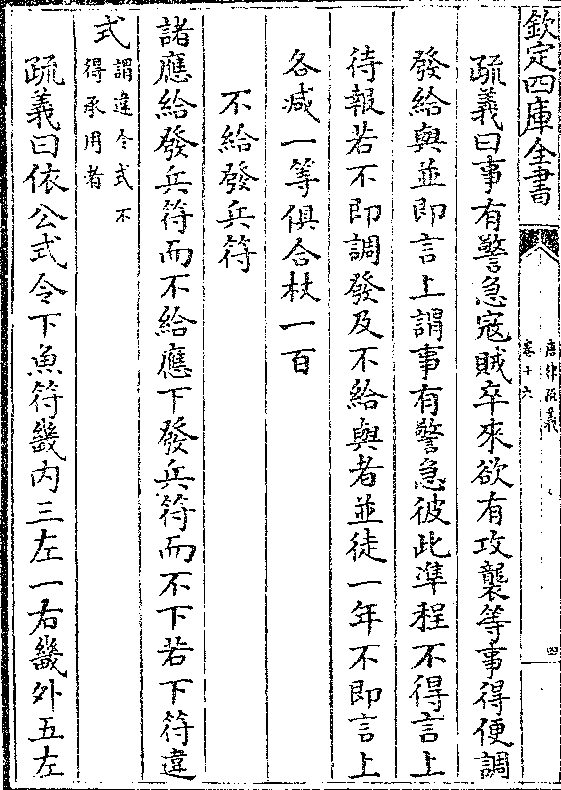 欽定四庫全書
唐律疏義
卷十六
四
疏義曰事有警急寇賊卒來欲有攻襲等事得便調
發給與並即言上謂事有警急彼此凖程不得言上
待報若不即調發及不給與者並徒一年不即言上
各減一等俱合杖一百
不給發兵符
諸應給發兵符而不給應下發兵符而不下若下符違
式謂違令式不
得承用者
疏義曰依公式令下魚符畿内三左一右畿外五左